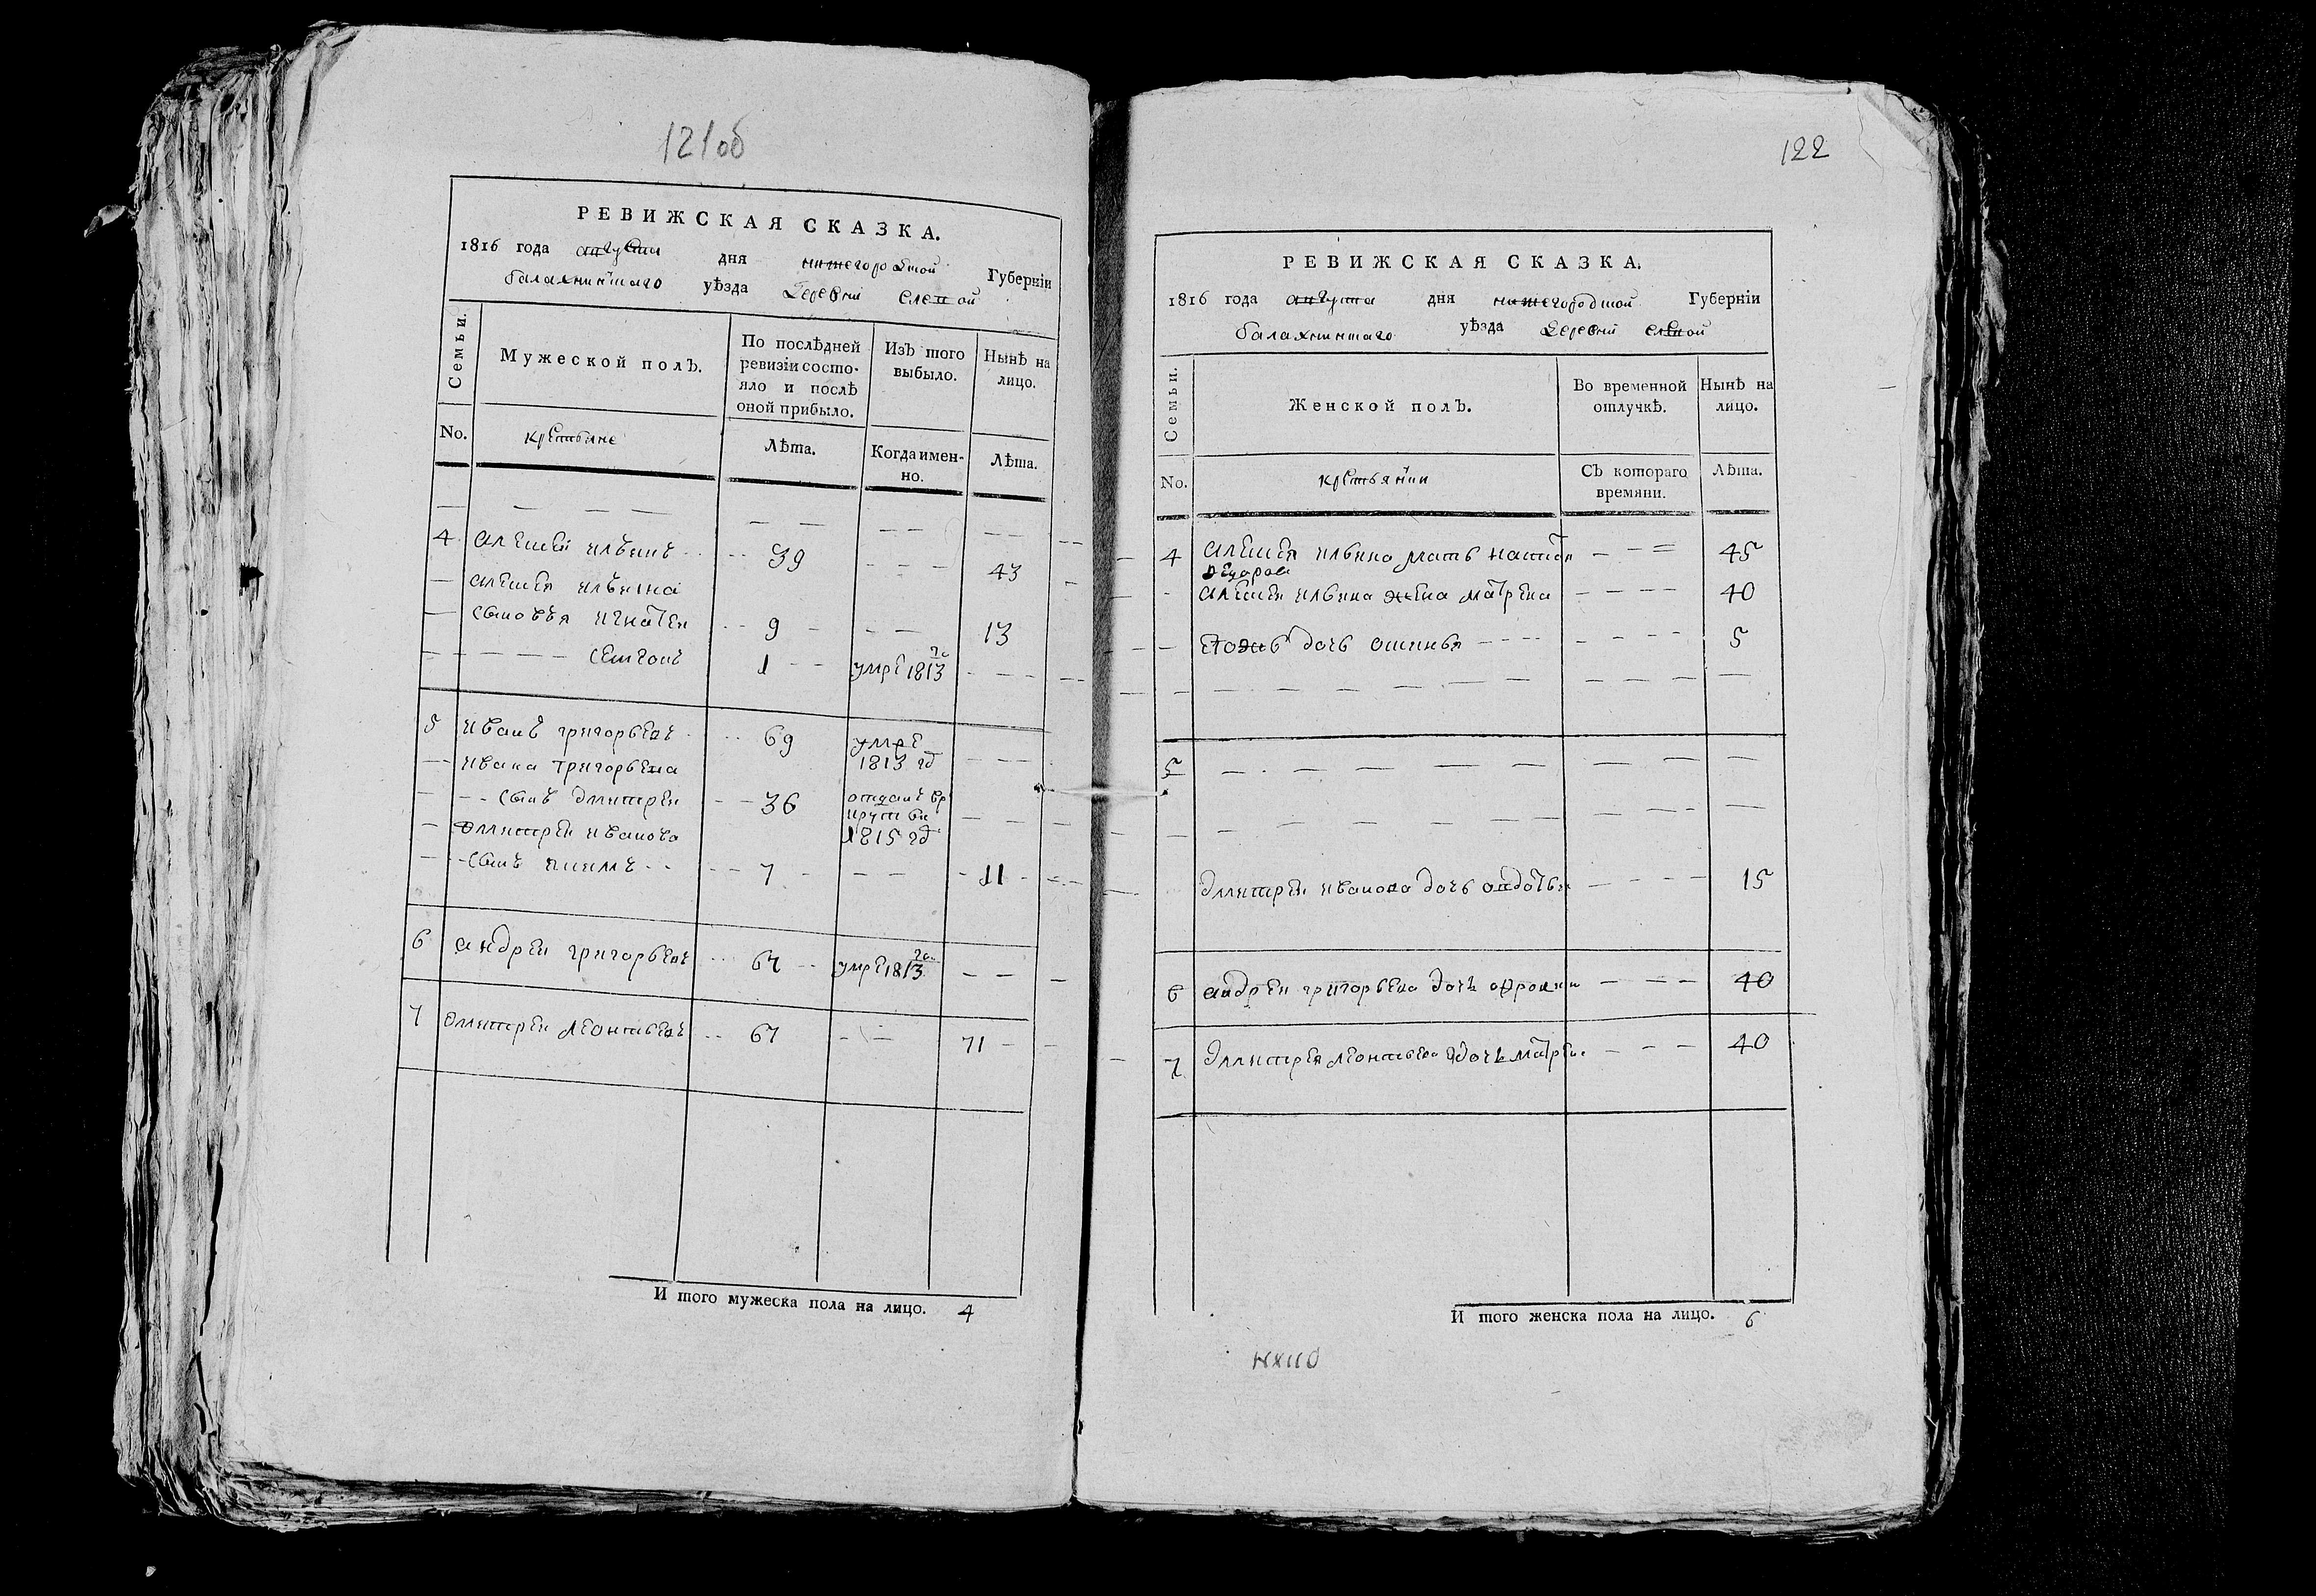 121об
РЕВИЖСКАЯ СКАЗКА.
1816 года августа дня нижегородской Губернїи
балахнинскаго уѣзда деревни
Семьи. Мужеской полъ. По послѣдней ревизїи состояло и послѣ оной прибыло. Изъ того выбыло. Нынѣ на лицо.
No. крестьяне Лѣта. Когда именно. Лѣта.
4 алексей ильинъ 39 43
алексея ильина
сыновья игнатей 9 13
1 умре 1813 го
5 иванъ григорьевъ 69 умре 1813 гд
ивана григорьева
сынъ дмитрей 36 отданъ вре круты 1815 гд
дмитрея иванова
сынъ 7 11
6 андрей григорьевъ 67 умре 1813 го
7 дмитрей леонтьевъ 67 71
И того мужеска пола на лицо. 4
122
РЕВИЖСКАЯ СКАЗКА.
1816 года августа дня нижегородской Губернїи
балахнинскаго уѣзда деревни
Семьи. Женской полъ. Во временной отлучкѣ. Нынѣ на лицо.
No. Съ котораго времяни. Лѣта.
4 алексея ильина мать 45
алексея ильина жена матрена 40
евожъ дочь 5
5
дмитрея иванова дочь авдотья 15
6 андрея григорьева дочь 40
7 дмитрея леонтьева дочь матрена 40
И того женска пола на лицо. 6